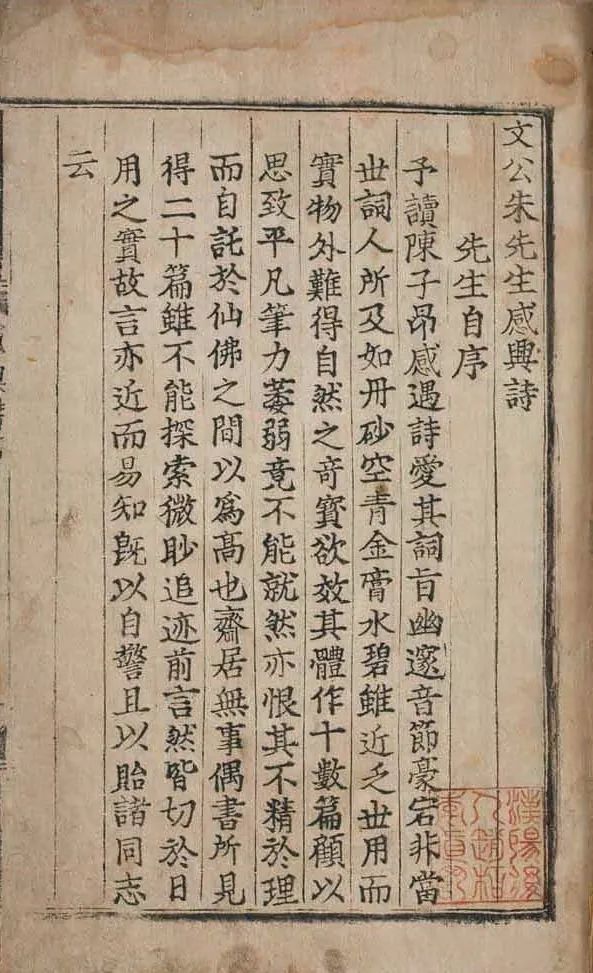 文公朱先生感興詩
先生自序
予讀陳子昂感遇詩愛其詞旨幽邃音節豪宕非當
世詞人所及如丹砂空青金膏水碧雖近乏世用而
實物外難得自然之奇寶欲效其體作十數篇顧以
思致平凡筆力萎弱竟不能就然亦恨其不精於理
而自託於仙佛之間以爲高也齋居無事偶書所見
得二十篇雖不能探索微眇追迹前言然皆切於日
用之實故言亦近而易知旣以自警且以貽諸同志
云